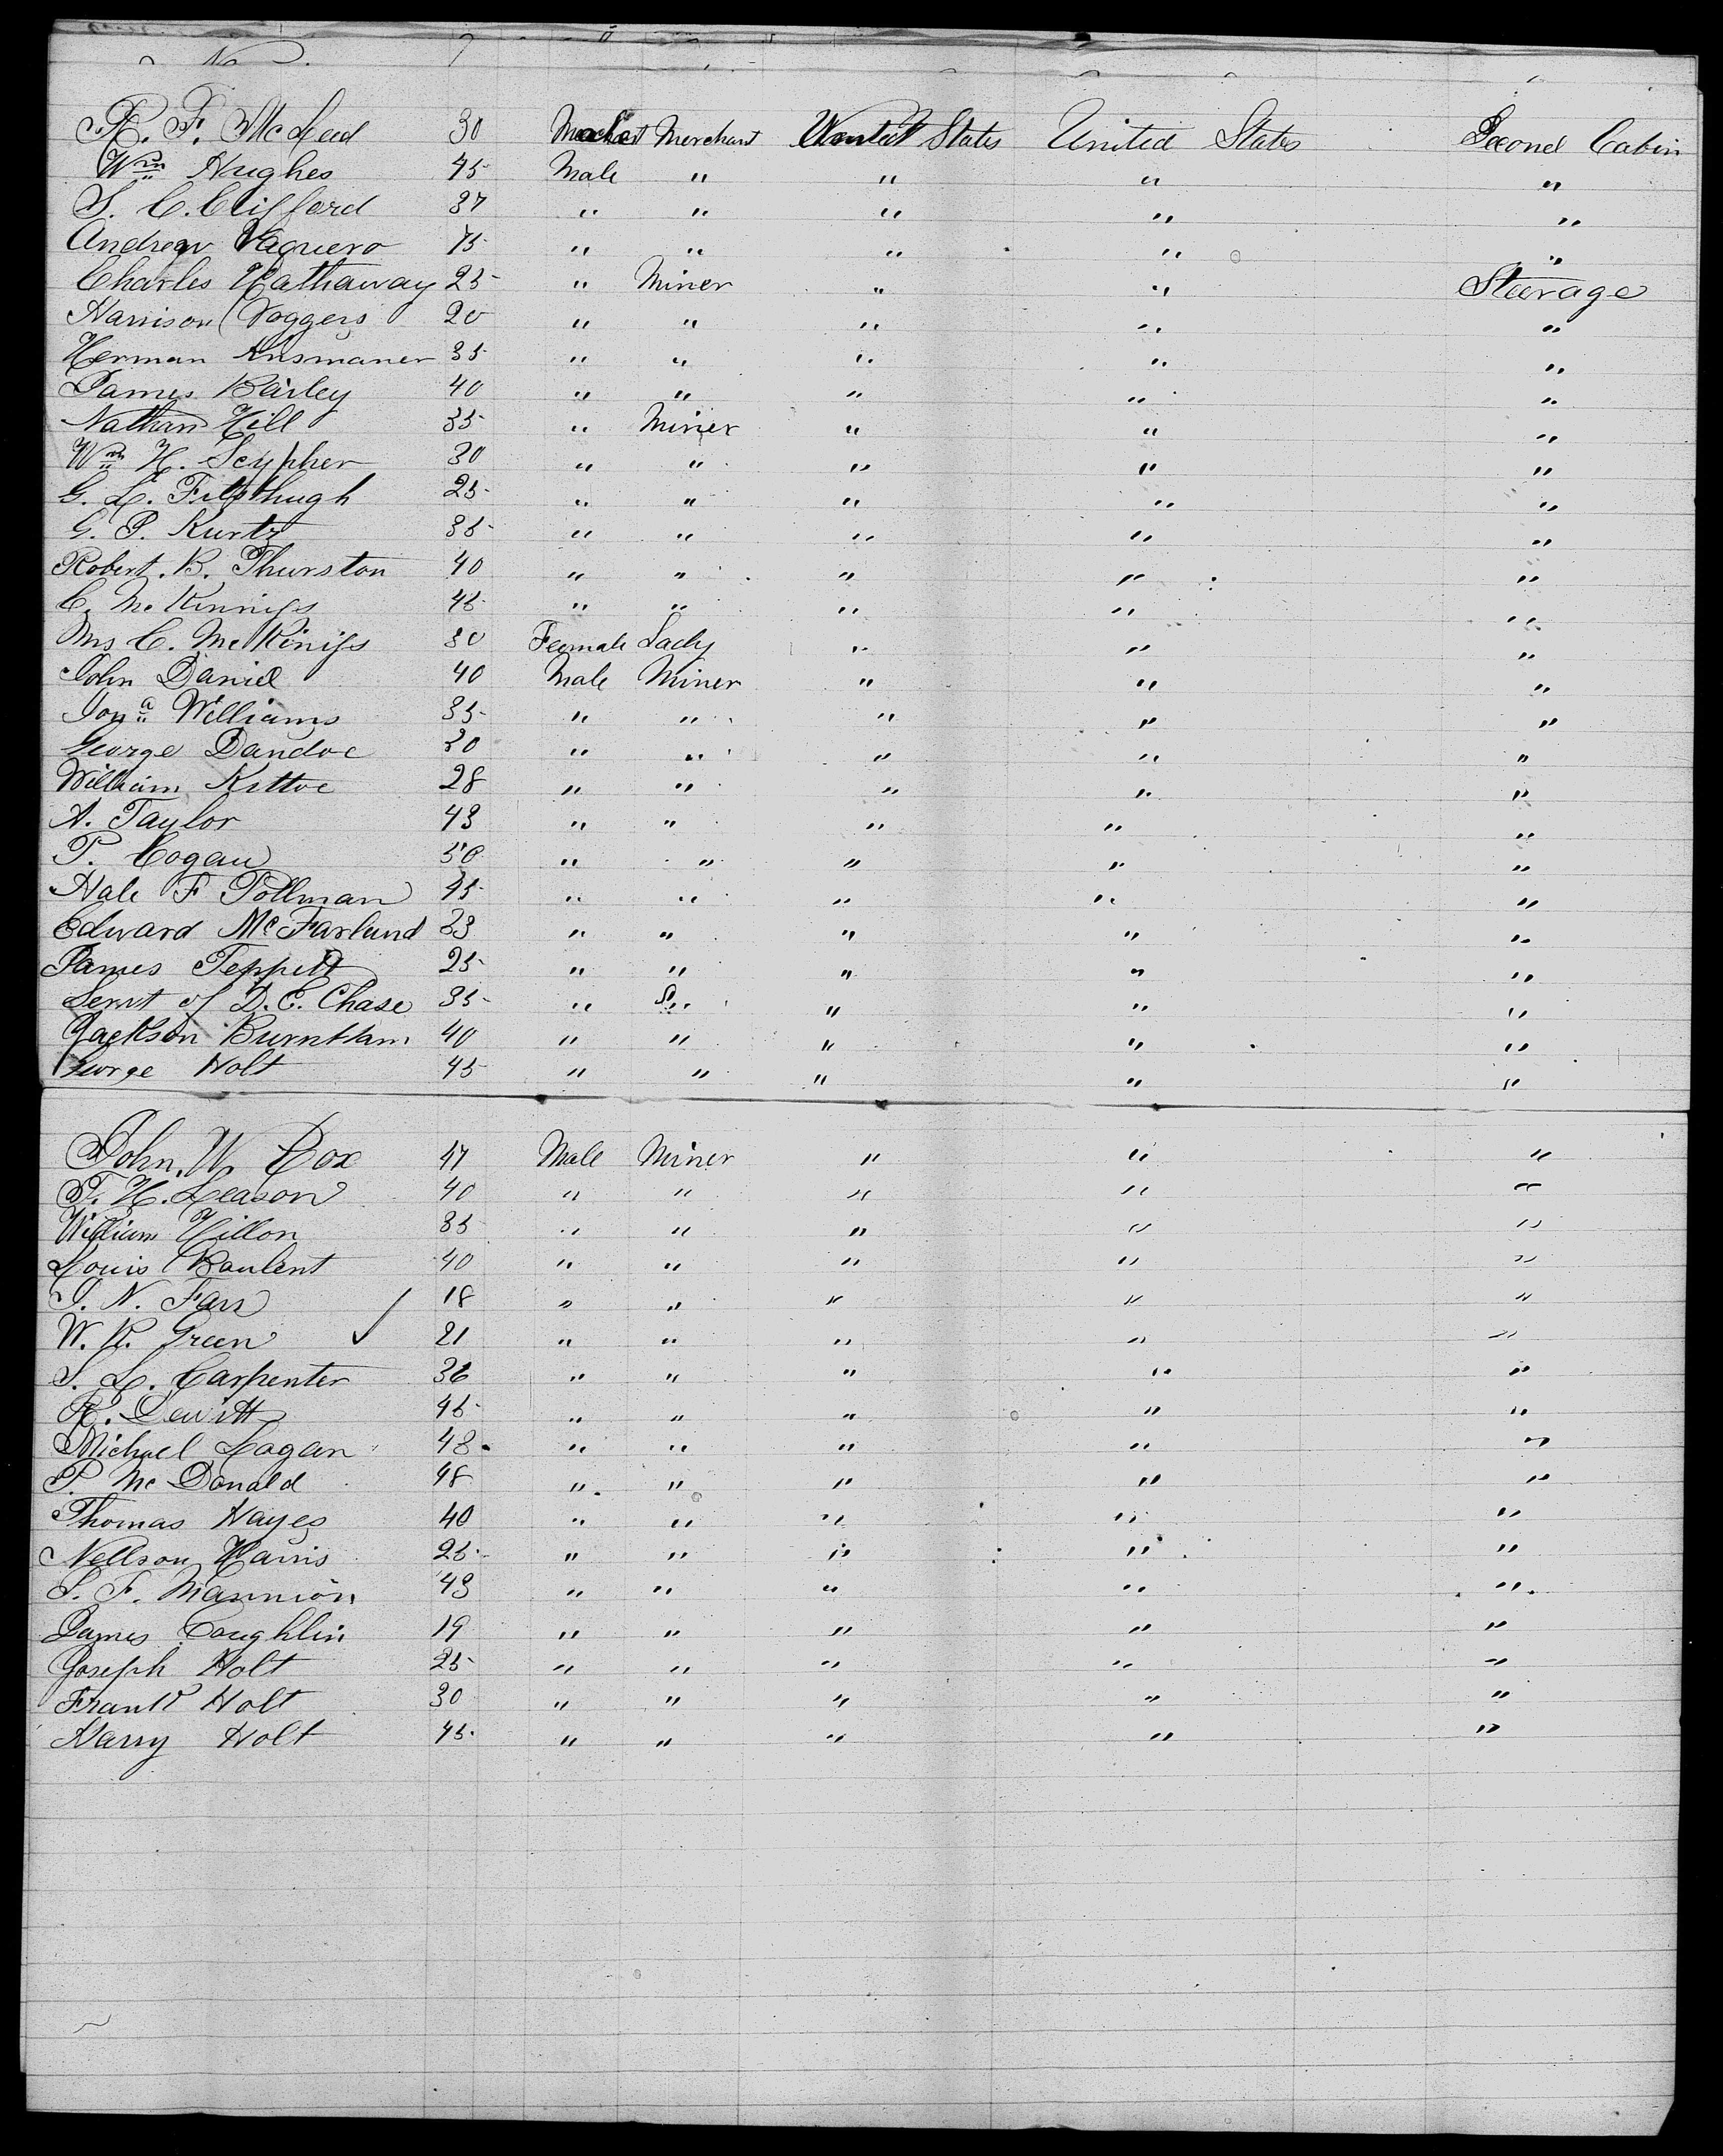 R. F. McLeod 30 Male Merchant United States United States Second Cabin
Wm Hughes 45 Male " " " "
S. C. Clifford 37 " " " " "
Andrew Vaquero 45 " " " " "
Charles Hathaway 25 " Miner " " Steerage
Harrison Voggers 20 " " " " "
Herman 35 " " " " "
James Bailey 40 " " " " "
Nathan Hill 35 " Miner " " "
Wm H. Scypher 30 " " " " "
G. L. Fitzhugh 25 " " " " "
G. P. Kurtz 35 " " " " "
Robert. B. Thurston 40 " " " " "
C. McKinniss 45 " " " " "
Mrs C. McKiniss 30 Feemale Lady " " "
John Daniel 40 Male Miner " " "
Jona Williams 35 " " " " "
George Dandoe 30 " " " " "
William Kittoe 28 " " " " "
A. Taylor 43 " " " " "
P. Cogan 50 " " " " "
Hale F Pollman 45 " " " " "
Edward McFarland 33 " " " " "
James Teppett 25 " " " " "
Servt of D. E. Chase 35 " " " " "
Jackson Burnham 40 " " " " "
George Holt 45 " " " " "
John. W. Cox 47 Male Miner " " "
T. H. Leason 40 " " " " "
William Hillon 35 " " " " "
Louis Baulent 40 " " " " "
J. N. Farr 18 " " " " "
W. R. Green ✓ 21 " " " " "
S. L. Carpenter 36 " " " " "
R. Dewitt 45 " " " " "
Michael Logan 48 " " " " "
P. McDonald 48 " " " " "
Thomas Hayes 40 " " " " "
Nellson Harris 25 " " " " "
S. F. Mannion 43 " " " " "
James Coughlin 19 " " " " "
Joseph Holt 25 " " " " "
Frank Holt 30 " " " " "
Harry Holt 45 " " " " "